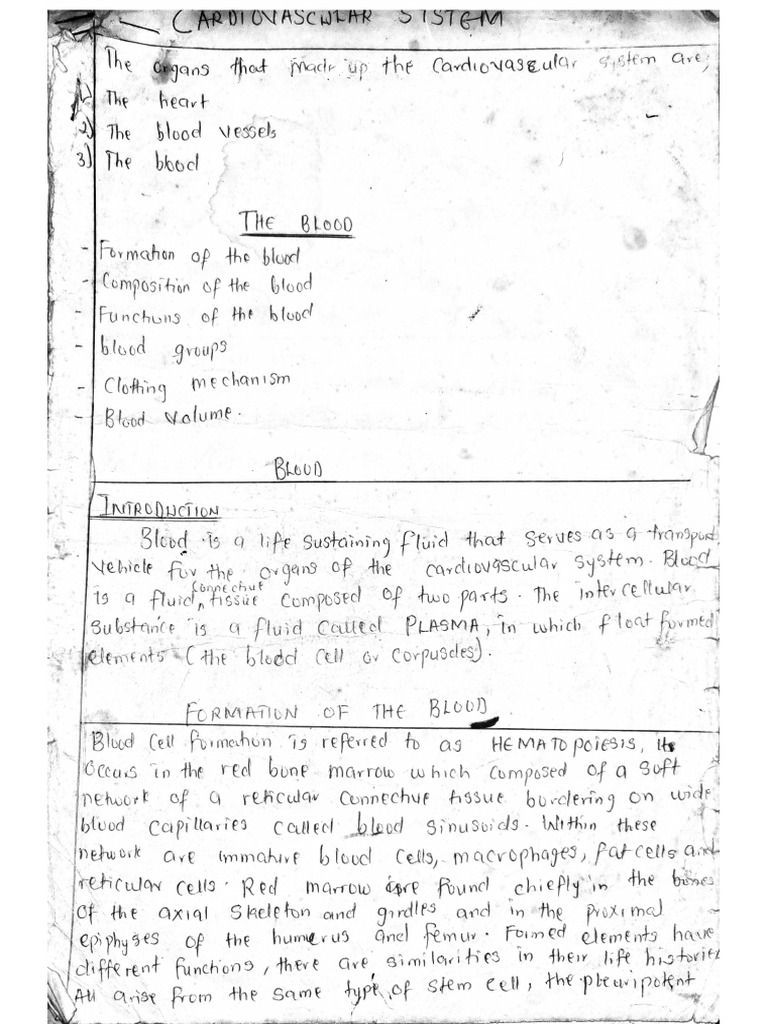 CARDIOVASCULAR SYSTEM
The organs that made up the cardiovascular system are;
1) The heart
2) The blood vessels
3) The blood
THE BLOOD
- Formation of the blood
- Composition of the blood
- Functions of the blood
- blood groups
- Clotting mechanism
- Blood volume.
BLOOD
INTRODUCTION
Blood is a life sustaining fluid that serves as a transport
vehicle for the organs of the cardiovascular system. Blood
is a fluid connective tissue composed of two parts. The intercellular
substance is a fluid called PLASMA, in which float formed
elements (the blood cell or corpuscles).
FORMATION OF THE BLOOD
Blood Cell formation is referred to as HEMATOPOIESIS, It
occurs in the red bone marrow which composed of a soft
network of a reticular connective tissue bordering on wide
blood capillaries called blood sinusoids. Within these
network are immature blood cells, macrophages, fat cells and
reticular cells. Red marrow are found chiefly in the bones
of the axial skeleton and girdles and in the proximal
epiphyses of the humerus and femur. Formed elements have
different functions, there are similarities in their life histories
All arise from the same type of stem cell, the pleuripotent